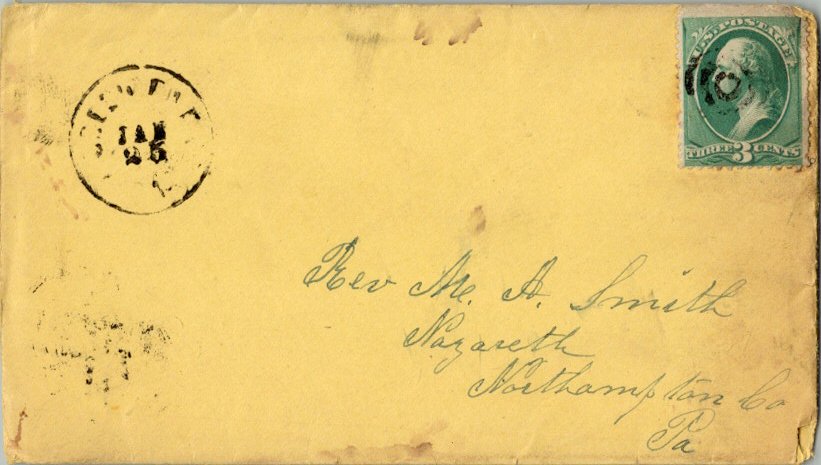 JAN
25
U.S. POSTAGE
THREE 3 CENTS
Rev M. A. Smith
Nazareth
Northampton Co
Pa